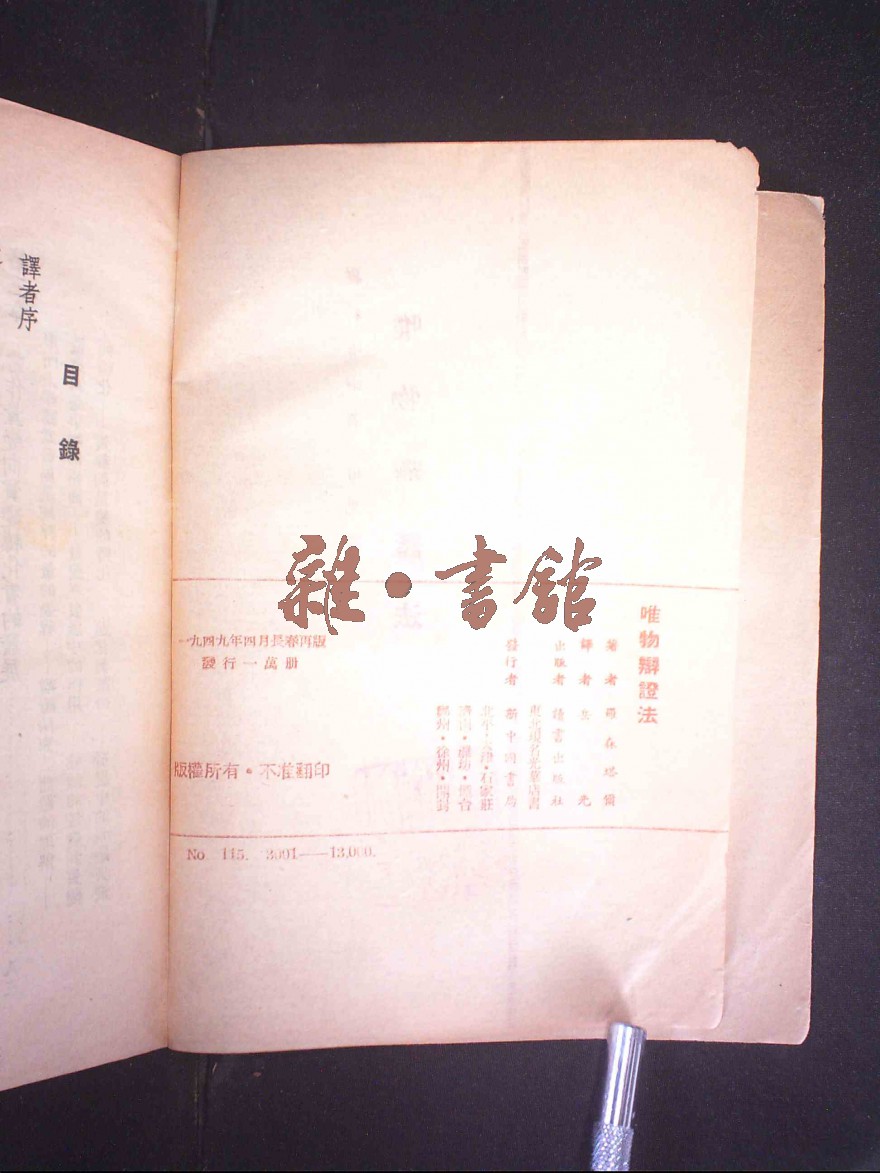 唯物辯證法
著者 羅森塔爾
譯者 岳光
出版者 讀書出版社
發行者 新中國書局
東北現名光華書店
北平·天津·石家莊
鄭州·徐州·開封
一九四九年四月長春再版
發行一萬册
版權所有·不准翻印
No. 115. 3001——13,000.
雜·書館
目錄
譯者序